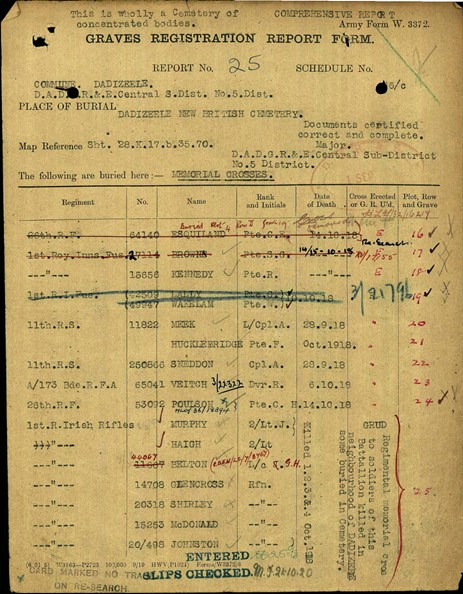 This is wholly a Cemetery of COMPREHENSIVE REPORT
concentrated bodies. Army Form W. 3372.
GRAVES REGISTRATION REPORT FORM.
REPORT No. 25 SCHEDULE No. 6/c
COMMUNE. DADIZEELE.
D.A.D.G.R.&E.Central S.Dist. No.5.Dist.
PLACE OF BURIAL
DADIZEELE NEW BRITISH CEMETERY.
Documents certified
correct and complete.
Map Reference Sht. 28.K.17.b.35.70. Major.
D.A.D.G.R.&E.Central Sub-District
No.5 District.
The following are buried here :— MEMORIAL CROSSES.
Regiment No. Name Rank and Initials Date of Death Cross Erected or G. R. U'd. Plot, Row and Grave
28th.R.F. 64140 ESQUILAND Pte.C.E. 14.10.18 E 16
1st.Roy.Inns.Fus. 27114 BROWNE Pte.S.G. 14/15-10-18 E 17
-"- 16656 KENNEDY Pte.R. --"-- E 18
1st.R.I.Fus. 2503 Pte. .10.18 19
49947 Pte.
11th.R.S. 11822 MEEK L/Cpl.A. 28.9.18 " 20
HUCKLEBRIDGE Pte.F. Oct.1918. " 21
11th.R.S. 250866 SNEDDON Cpl.A. 28.9.18 " 22
A/173 Bde.R.F.A 65041 VEITCH Dvr.R. 6.10.18 " 23
28th.R.F. 53092 POULSON Pte.C.H. 14.10.18 " 24
1st.R.Irish Rifles MURPHY 2/Lt.J.
-"- HAIGH 2/Lt
-"- BELTON L/c
-"- 14708 GLENCROSS Rfn.
-"- 20318 SHIRLEY -"-
-"- 15253 McDONALD -"-
-"- 20/498 JOHNSTON -"-
Killed 1.2.3.& 4 Oct.1918
GRUD
Regimental memorial cross
to soldiers of this
Battalion killed in
neighbourhood of DADIZEELE
some buried in Cemetery.
25
ENTERED
SLIPS CHECKED.
CARD MARKED NO TRA
ON RE-SEARCH.